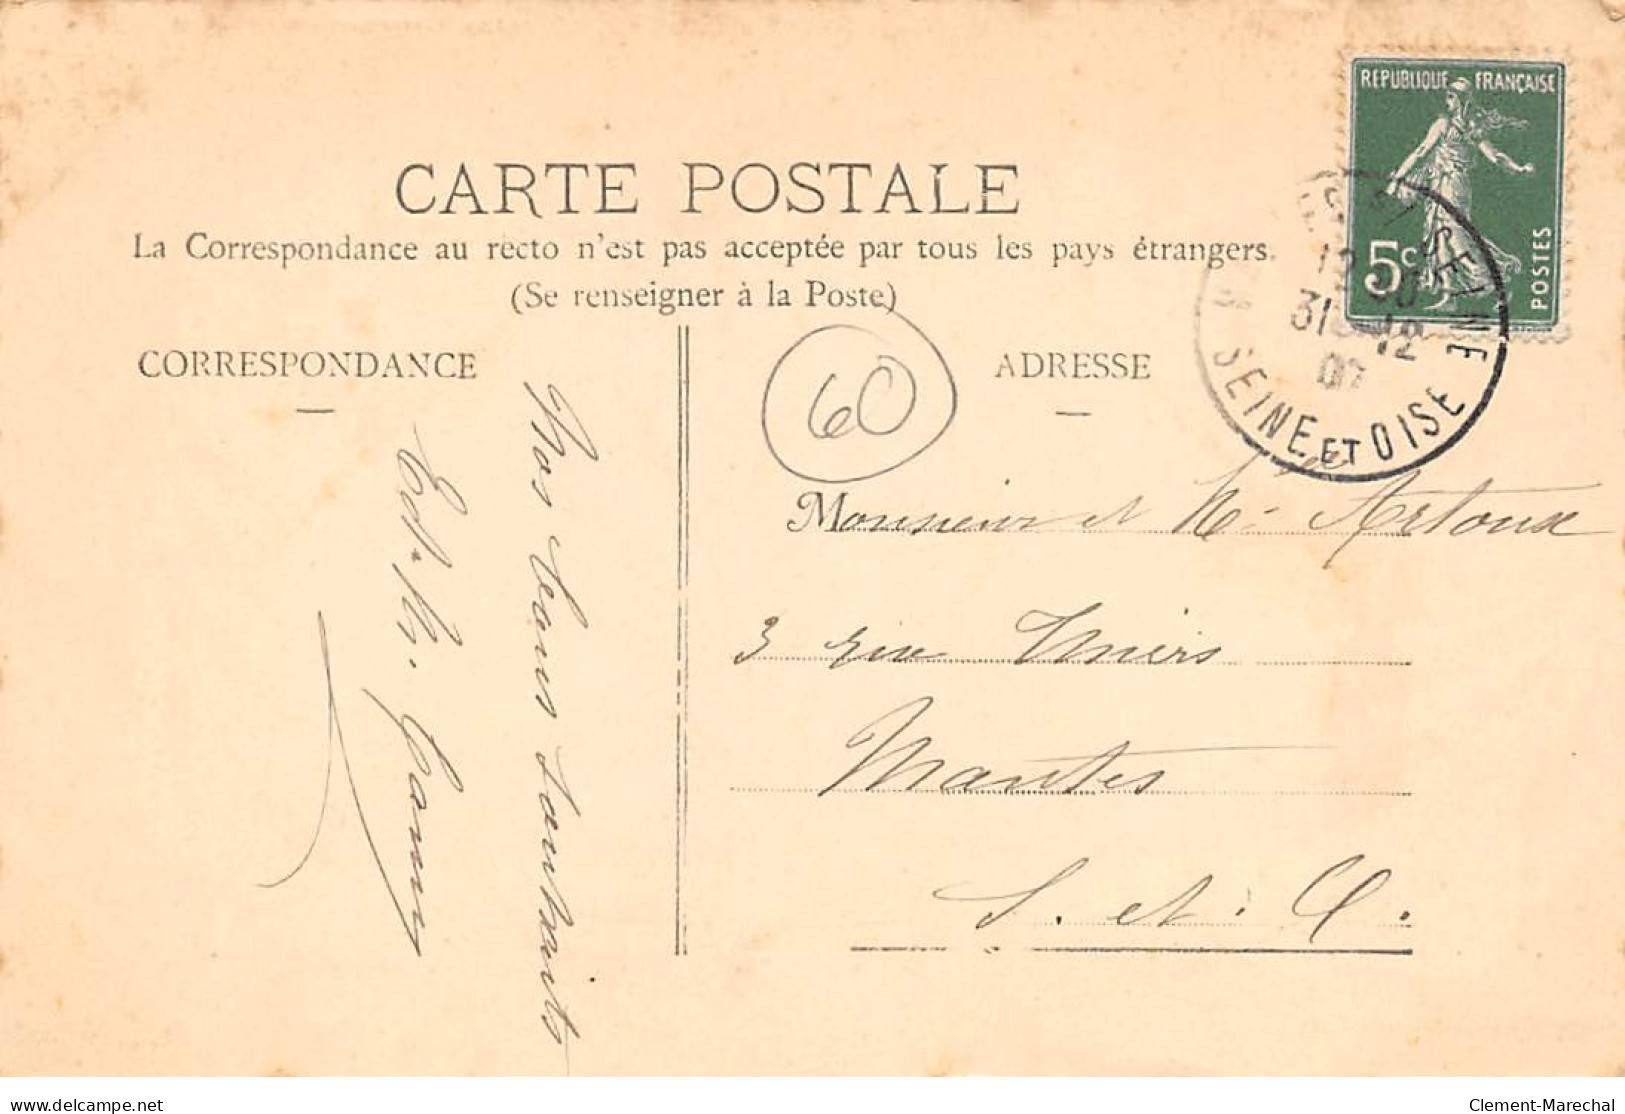 REPUBLIQUE FRANÇAISE
5c
POSTES
CARTE POSTALE
La Correspondance au recto n'est pas acceptée par tous les pays étrangers.
(Se renseigner à la Poste)
SEINE
31 12
SEINE ET OISE
CORRESPONDANCE
60
ADRESSE
Nos bons souhaits
Ed. N.
Monsieur et Artoux
3 rue Thiers
Mantes
S. et. O.
delcampe.net
Clement-Marechal